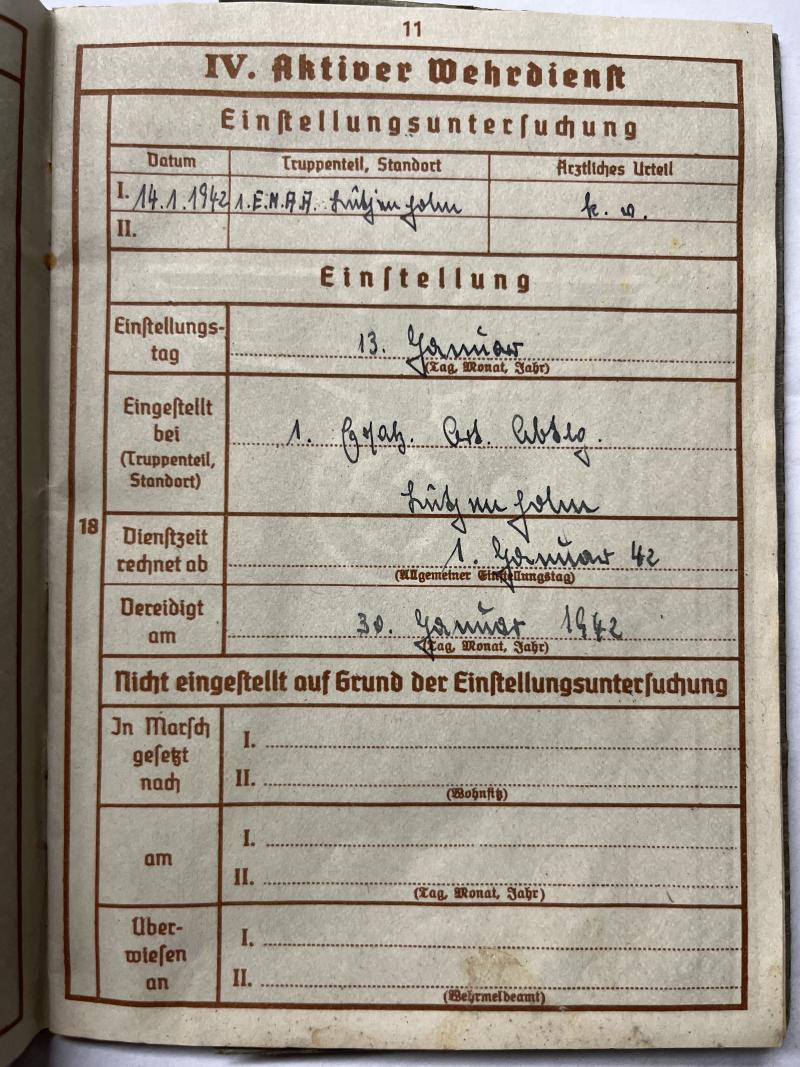 11
IV. Aktiver Wehrdienst
Einstellungsuntersuchung
Datum Truppenteil, Standort Ärztliches Urteil
I. 14.1.1942 1.E.M.A.A. Lütjenholm k. v.
II.
Einstellung
Einstellungs-
tag
13. Januar
(Tag, Monat, Jahr)
Eingestellt
bei
(Truppenteil,
Standort)
1. Ersatz. Art. Abtlg.
Lütjenholm
18
Dienstzeit
rechnet ab
1. Januar 42
(Allgemeiner Einstellungstag)
Vereidigt
am
30. Januar 1942
(Tag, Monat, Jahr)
Nicht eingestellt auf Grund der Einstellungsuntersuchung
In Marsch
gesetzt
nach
I.
II.
(Wohnsitz)
am
I.
II.
(Tag, Monat, Jahr)
Über-
wiesen
an
I.
II.
(Wehrmeldeamt)